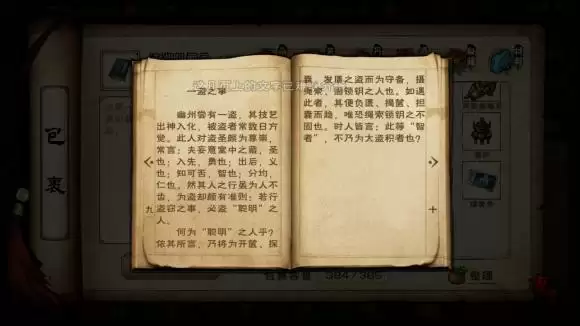 一盗之事
幽州尝有一盗，其技艺
出神入化，被盗者常数日方
觉。此人对盗圣颇为尊崇，
常言：夫妄意室中之藏，圣
也；入先，勇也；出后，义
也；知可否，智也；分均，
仁也。然其人之行虽为人不
齿，为盗却颇有准则：若行
盗窃之事，必盗“聪明”之
人。
何为“聪明”之人乎？
依其所言，乃将为开箧、探
九
囊、发匮之盗而为守备，摄
绳索、固锁钥之人也。如遇
此者，其便负匮、揭箧、担
囊而趋，唯恐绳索锁钥之不
固也。时人皆言：此等“智
者”，不乃为大盗积者也？
十
包裹
384/385
整理